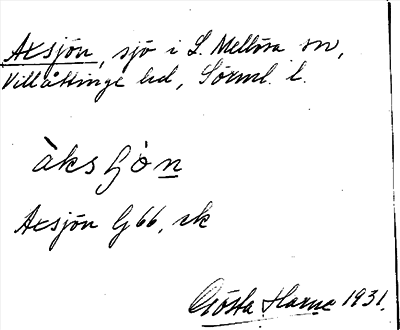 Axsjön, sjö i L. Mellösa sn,
Villåttinge hd, Sörml. l.
àksʃòn
Axsjön G 66, sk
Gösta Harne 1931.